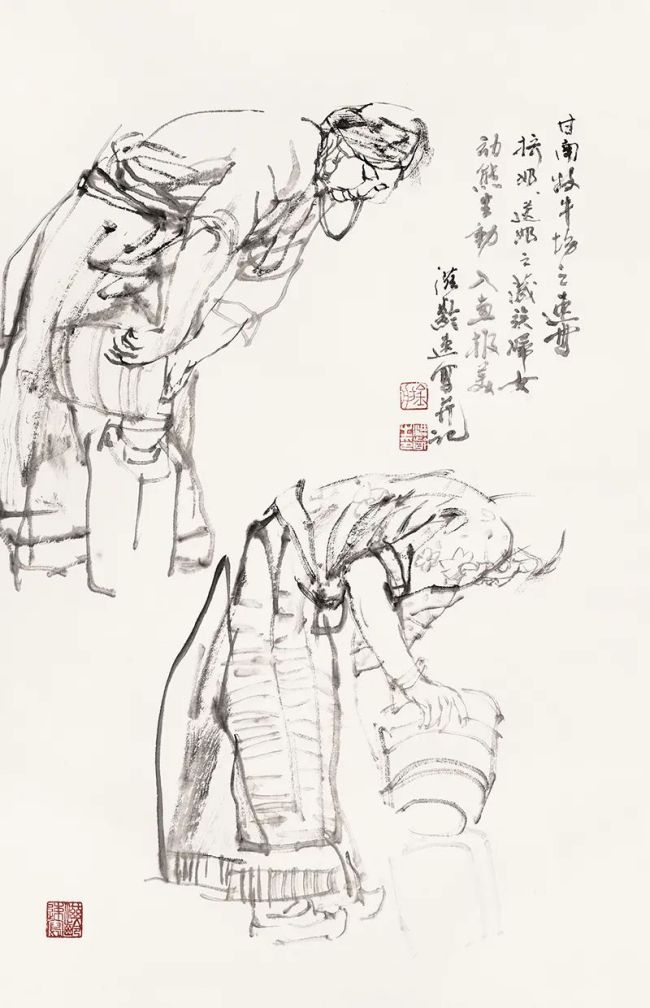 甘南牧牛场之速写
挤奶、送奶之藏族婦女
动態生動 入画极美
滋齡速写并记